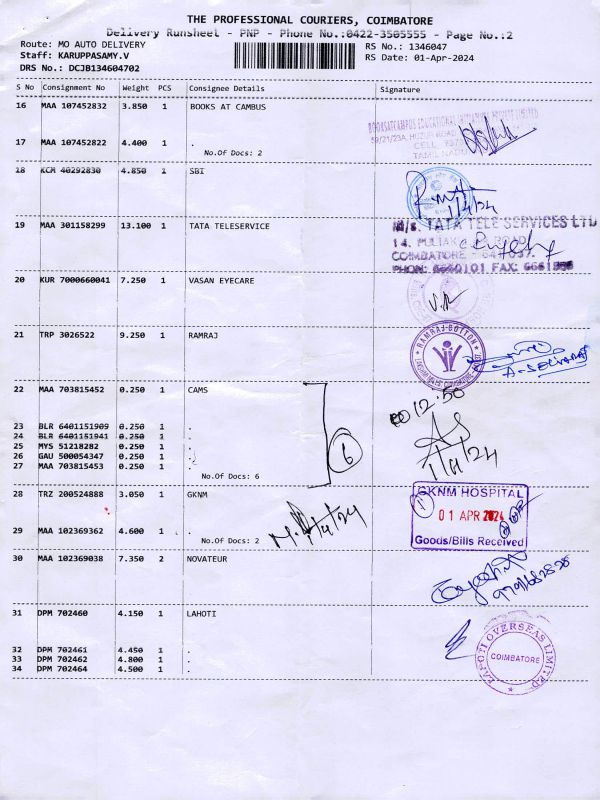 THE PROFESSIONAL COURIERS, COIMBATORE
Delivery Runsheet - PNP - Phone No.:0422-3505555 - Page No.:2
Route: MO AUTO DELIVERY
Staff: KARUPPASAMY.V
DRS No.: DCJB134604702
RS No.: 1346047
RS Date: 01-Apr-2024
S No Consignment No Weight PCS Consignee Details Signature
16 MAA 107452832 3.850 1 BOOKS AT CAMBUS
17 MAA 107452822 4.400 1 .
No.Of Docs: 2
18 KCM 40292830 4.850 1 SBI
1/4/24
19 MAA 301158299 13.100 1 TATA TELESERVICE
M/s. TATA TELE SERVICES LTD
COIMBATORE
20 KUR 7000660041 7.250 1 VASAN EYECARE
21 TRP 3026522 9.250 1 RAMRAJ
RAMRAJ COTTON
22 MAA 703815452 0.250 1 CAMS
12:50
23 BLR 6401151909 0.250 1 .
24 BLR 6401151941 0.250 1 .
25 MYS 51218282 0.250 1 .
26 GAU 500054347 0.250 1 .
27 MAA 703815453 0.250 1 .
No.Of Docs: 6
6
1/4/24
28 TRZ 200524888 3.050 1 GKNM
GKNM HOSPITAL
01 APR 2024
Goods/Bills Received
29 MAA 102369362 4.600 1 .
No.Of Docs: 2
1/4/24
30 MAA 102369038 7.350 2 NOVATEUR
31 DPM 702460 4.150 1 LAHOTI
32 DPM 702461 4.450 1 .
33 DPM 702462 4.800 1 .
34 DPM 702464 4.500 1 .
OVERSEAS LIMITED
COIMBATORE